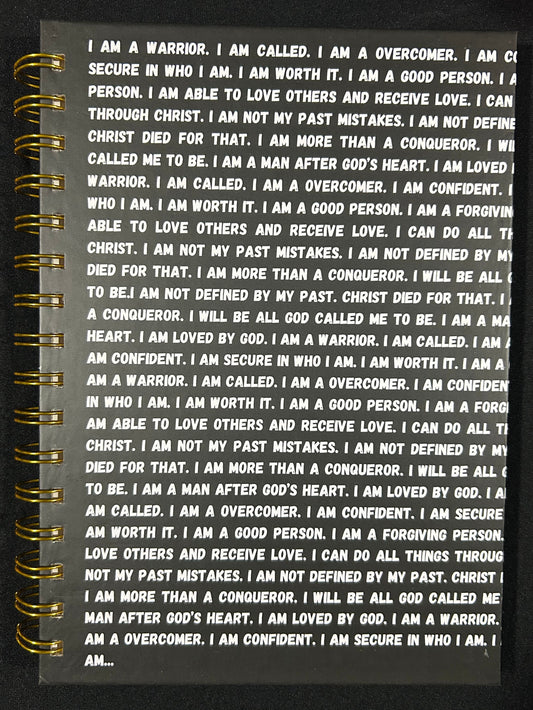 I AM A WARRIOR. I AM CALLED. I AM A OVERCOMER. I AM
SECURE IN WHO I AM. I AM WORTH IT. I AM A GOOD PERSON. I
PERSON. I AM ABLE TO LOVE OTHERS AND RECEIVE LOVE. I CAN
THROUGH CHRIST. I AM NOT MY PAST MISTAKES. I AM NOT
CHRIST DIED FOR THAT. I AM MORE THAN A CONQUEROR. I
CALLED ME TO BE. I AM A MAN AFTER GOD'S HEART. I AM LOVED
WARRIOR. I AM CALLED. I AM A OVERCOMER. I AM CONFIDENT. I
WHO I AM. I AM WORTH IT. I AM A GOOD PERSON. I AM A
ABLE TO LOVE OTHERS AND RECEIVE LOVE. I CAN DO ALL
CHRIST. I AM NOT MY PAST MISTAKES. I AM NOT DEFINED BY MY
DIED FOR THAT. I AM MORE THAN A CONQUEROR. I WILL BE ALL
TO BE.I AM NOT DEFINED BY MY PAST. CHRIST DIED FOR THAT. I
A CONQUEROR. I WILL BE ALL GOD CALLED ME TO BE. I AM A
HEART. I AM LOVED BY GOD. I AM A WARRIOR. I AM CALLED. I AM
AM CONFIDENT. I AM SECURE IN WHO I AM. I AM WORTH IT. I AM A
AM A WARRIOR. I AM CALLED. I AM A OVERCOMER. I AM CONFIDENT
IN WHO I AM. I AM WORTH IT. I AM A GOOD PERSON. I AM A
AM ABLE TO LOVE OTHERS AND RECEIVE LOVE. I CAN DO ALL
CHRIST. I AM NOT MY PAST MISTAKES. I AM NOT DEFINED BY MY
DIED FOR THAT. I AM MORE THAN A CONQUEROR. I WILL BE ALL
TO BE. I AM A MAN AFTER GOD'S HEART. I AM LOVED BY GOD. I
AM CALLED. I AM A OVERCOMER. I AM CONFIDENT. I AM SECURE
AM WORTH IT. I AM A GOOD PERSON. I AM A FORGIVING PERSON.
LOVE OTHERS AND RECEIVE LOVE. I CAN DO ALL THINGS
NOT MY PAST MISTAKES. I AM NOT DEFINED BY MY PAST. CHRIST
I AM MORE THAN A CONQUEROR. I WILL BE ALL GOD CALLED ME
MAN AFTER GOD'S HEART. I AM LOVED BY GOD. I AM A WARRIOR.
AM A OVERCOMER. I AM CONFIDENT. I AM SECURE IN WHO I AM. I
AM...